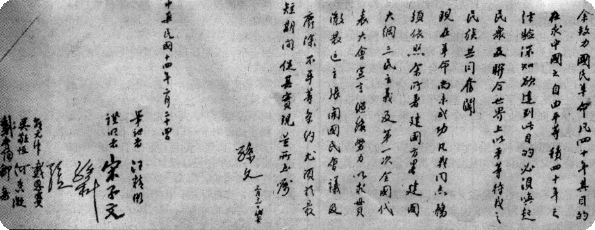 余致力國民革命凡四十年其目的
在求中國之自由平等積四十年之
經驗深知欲達到此目的必須喚起
民衆及聯合世界上以平等待我之
民族共同奮鬭
現在革命尚未成功凡我同志務
須依照余所著建國方略建國
大綱三民主義及第一次全國代
表大會宣言繼續努力以求貫
澈最近主張開國民會議及
廢除不平等條約尤須於最
短期間促其實現是所至囑
孫文
中華民國十四年二月二十四
筆記者 汪精衛
證明者 宋子文
孫科
邵元冲 戴恩賽
吳敬恆 何香凝
戴季陶 鄒魯